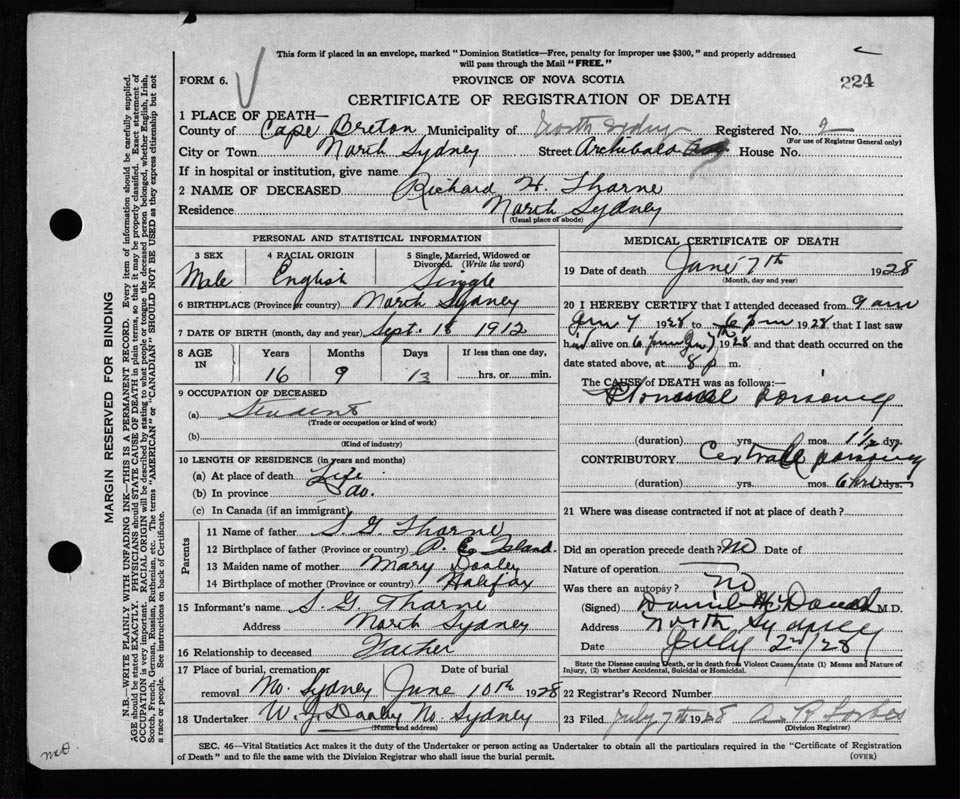 This form if placed in an envelope, marked "Dominion Statistics—Free, penalty for improper use $300," and properly addressed
will pass through the Mail "FREE."
FORM 6.
PROVINCE OF NOVA SCOTIA
224
CERTIFICATE OF REGISTRATION OF DEATH
1 PLACE OF DEATH—
County of Cape Breton Municipality of North Sydney Registered No. 2
(For use of Registrar General only)
City or Town North Sydney Street Archibald House No.
If in hospital or institution, give name
2 NAME OF DECEASED Richard H. Thorne
Residence North Sydney
(Usual place of abode)
PERSONAL AND STATISTICAL INFORMATION
3 SEX 4 RACIAL ORIGIN 5 Single, Married, Widowed or Divorced. (Write the word)
Male English Single
6 BIRTHPLACE (Province or country) North Sydney
7 DATE OF BIRTH (month, day and year) Sept. 18 1912
8 AGE IN Years Months Days If less than one day,
16 9 13 hrs. or min.
9 OCCUPATION OF DECEASED
(a) Student
(Trade or occupation or kind of work)
(b)
(Kind of industry)
10 LENGTH OF RESIDENCE (in years and months)
(a) At place of death Life
(b) In province do.
(c) In Canada (if an immigrant)
Parents
11 Name of father S. G. Thorne
12 Birthplace of father (Province or country) P. E. Island.
13 Maiden name of mother Mary Dooley
14 Birthplace of mother (Province or country) Halifax
15 Informant's name S. G. Thorne
Address North Sydney
16 Relationship to deceased Father
17 Place of burial, cremation or removal Date of burial
No. Sydney June 10th 1928
18 Undertaker W. J. Dooley No. Sydney
(Name and address)
MEDICAL CERTIFICATE OF DEATH
19 Date of death June 7th 1928
(Month, day and year)
20 I HEREBY CERTIFY that I attended deceased from 9 am
Jun 7 1928 to 6 pm 1928 that I last saw
him alive on 6 pm Jun 7th 1928 and that death occurred on
date stated above, at 8 p m.
The CAUSE of DEATH was as follows:—
Ptomaine poisoning
(duration) yrs. mos. 1 1/2 dys.
CONTRIBUTORY poisoning
(duration) yrs. mos. 6 hrs dys.
21 Where was disease contracted if not at place of death?
Did an operation precede death? no Date of
Nature of operation
Was there an autopsy? no
(Signed) M.D.
Address North Sydney
Date July 2nd/28
State the Disease causing Death, or in death from Violent Causes, state (1) Means and Nature of
Injury, (2) whether Accidental, Suicidal or Homicidal.
22 Registrar's Record Number
23 Filed July 7th 1928 A R Forbes
(Division Registrar)
SEC. 46—Vital Statistics Act makes it the duty of the Undertaker or person acting as Undertaker to obtain all the particulars required in the "Certificate of Registration
of Death" and to file the same with the Division Registrar who shall issue the burial permit.
(OVER)
MARGIN RESERVED FOR BINDING
N.B.—WRITE PLAINLY WITH UNFADING INK—THIS IS A PERMANENT RECORD. Every item of information should be carefully supplied.
AGE should be stated EXACTLY. PHYSICIANS should STATE CAUSE OF DEATH in plain terms, so that it may be properly classified. Exact statement of
OCCUPATION is very important. RACIAL ORIGIN will be described by stating to what people or race the deceased person belonged, whether English, Irish,
Scotch, French, German, Russian, Ruthenian, etc. The terms "AMERICAN" or "CANADIAN" SHOULD NOT BE USED as they express citizenship but not
a race or people. See instructions on back of Certificate.